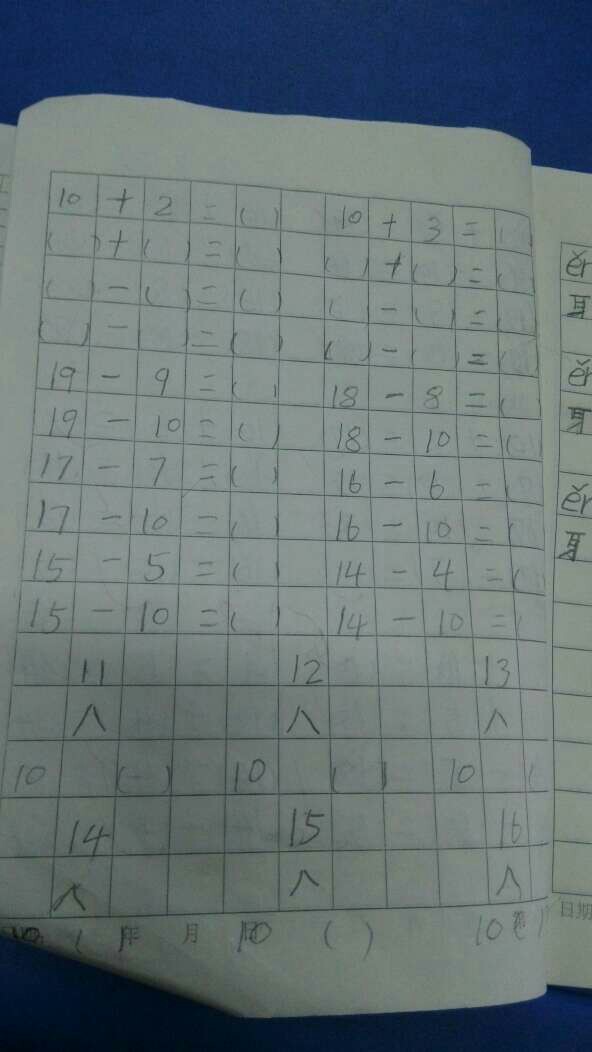 10 + 2 = ( ) 10 + 3 = (
( ) + ( ) = ( ) ( ) + ( ) = (
( ) - ( ) = ( ) ( ) - ( ) = (
( ) - ( ) = ( ) ( ) - ( ) = (
19 - 9 = ( ) 18 - 8 = (
19 - 10 = ( ) 18 - 10 = (
17 - 7 = ( ) 16 - 6 = (
17 - 10 = ( ) 16 - 10 = (
15 - 5 = ( ) 14 - 4 = (
15 - 10 = ( ) 14 - 10 = (
11 12 13
10 ( ) 10 ( ) 10 (
14 15 16
( ) 年 月 10 ( ) 10 ( )
ěr
耳
ěr
耳
ěr
耳
日期